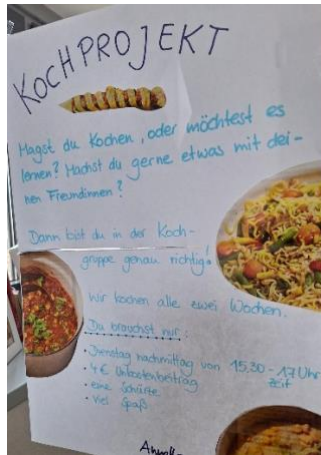 KOCHPROJEKT
Magst du Kochen, oder möchtest es
lernen? Machst du gerne etwas mit dei-
nen Freundinnen?
Dann bist du in der Koch-
gruppe genau richtig!
Wir kochen alle zwei Wochen.
Du brauchst nur:
• Dienstag nachmittag von 15.30 - 17 Uhr
Zeit
• 4€ Unkostenbeitrag
• eine Schürze
• viel Spaß